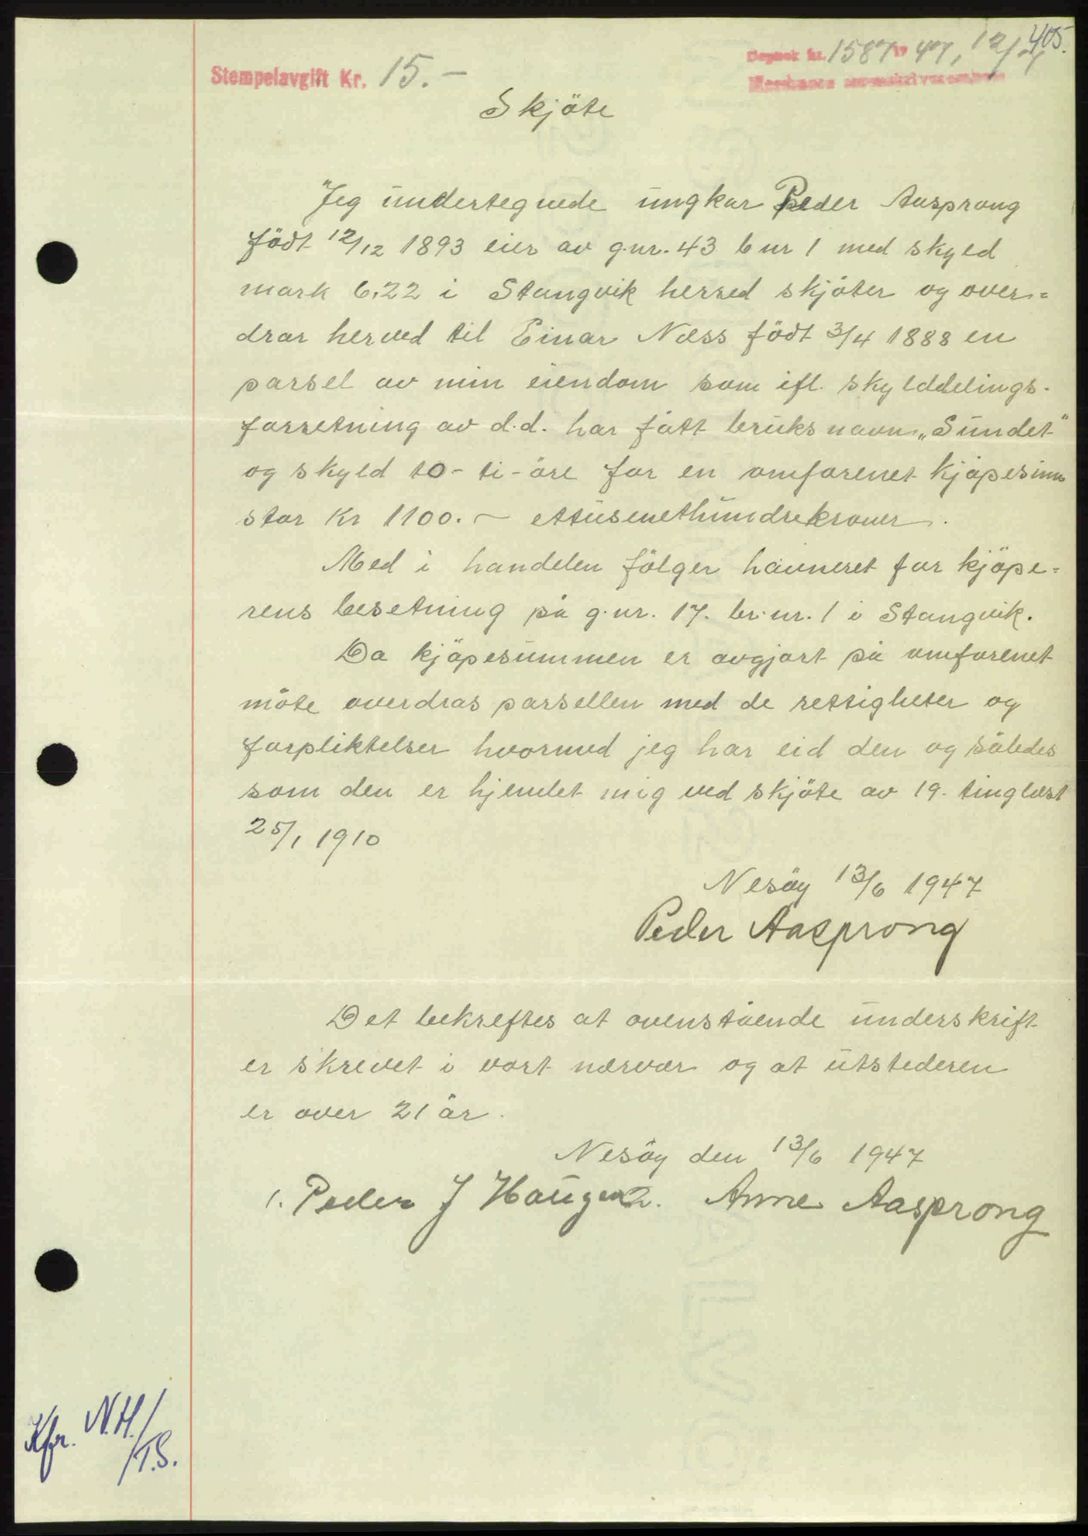 405.
Stempelavgift Kr. 15.-
Dagbok nr. 1587 19 47, 12/7
Nordmøre sorenskriverembete
Skjöte
Jeg undertegnede ungkar Peder Aasprong
födt 12/12 1893 eier av g.nr. 43 b nr 1 med skyld
mark 6,22 i Stangvik herred skjöter og over=
drar herved til Einar Næss födt 3/4 1888 en
parsel av min eiendom som ifl. skylddelings-
forretning av d.d. har fått bruksnavn „Sundet"
og skyld 10- ti- öre for en omforenet kjöpesum
stor Kr 1100.- ettusenethundrekroner.
Med i handelen fölger havneret for kjöpe=
rens besetning på g.nr. 17. br.nr. 1 i Stangvik.
Da kjöpesummen er avgjort på omforenet
möte overdras parsellen med de rettigheter og
forpliktelser hvormed jeg har eid den og således
som den er hjemlet mig ved skjöte av 19. tinglæst
25/1 1910
Nesöy 13/6 1947
Peder Aasprong
Det bekreftes at ovenstående underskrift
er skrevet i vort nærvær og at utstederen
er over 21 år.
Nesöy den 13/6 1947
1. Peder J Haugen 2. Anne Aasprong
Kfr. N.H./
/T.S.